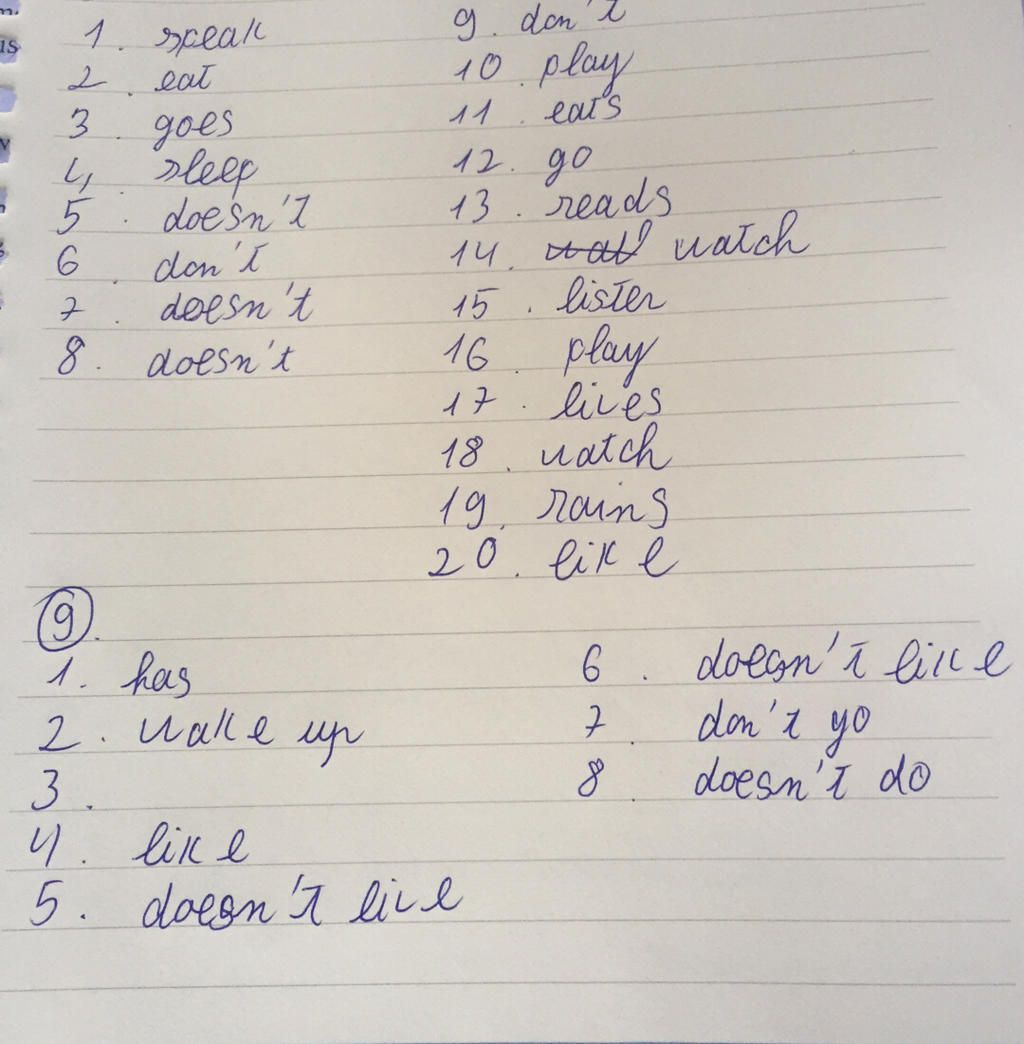 1. speak
2. eat
3. goes
4, sleep
5. doesn't
6. don't
7. doesn't
8. doesn't
9. don't
10. play
11. eats
12. go
13. reads
14. watch
15. listen
16. play
17. lives
18. watch
19. rains
20. like
9.
1. has
2. wake up
3.
4. like
5. doesn't live
6. doesn't like
7. don't go
8. doesn't do